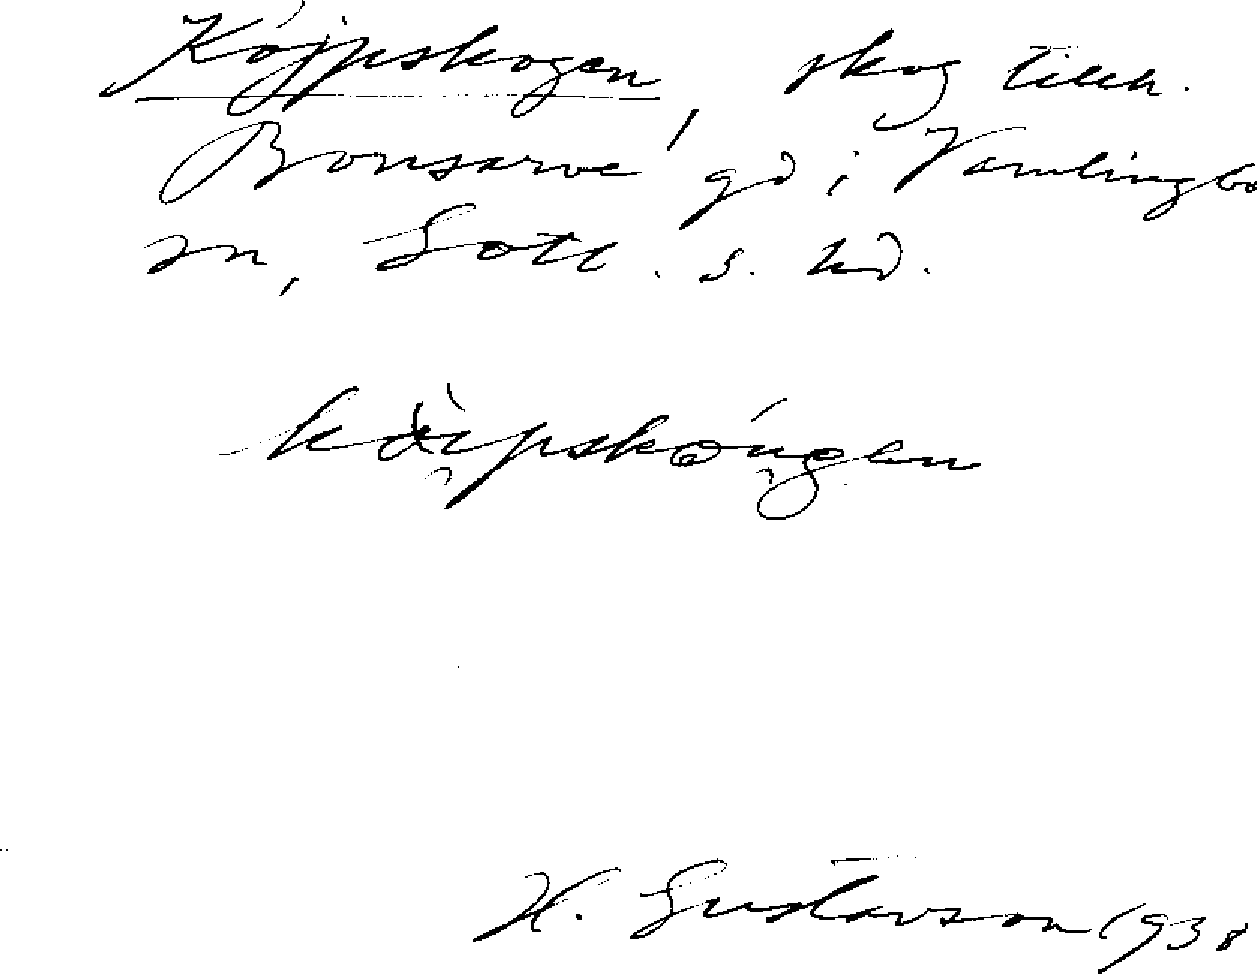 Köjpskogen, skog tillh.
Bonsarve gd i Vamlingbo
sn, Gotl. s. hd.
H. Gustavson 1938